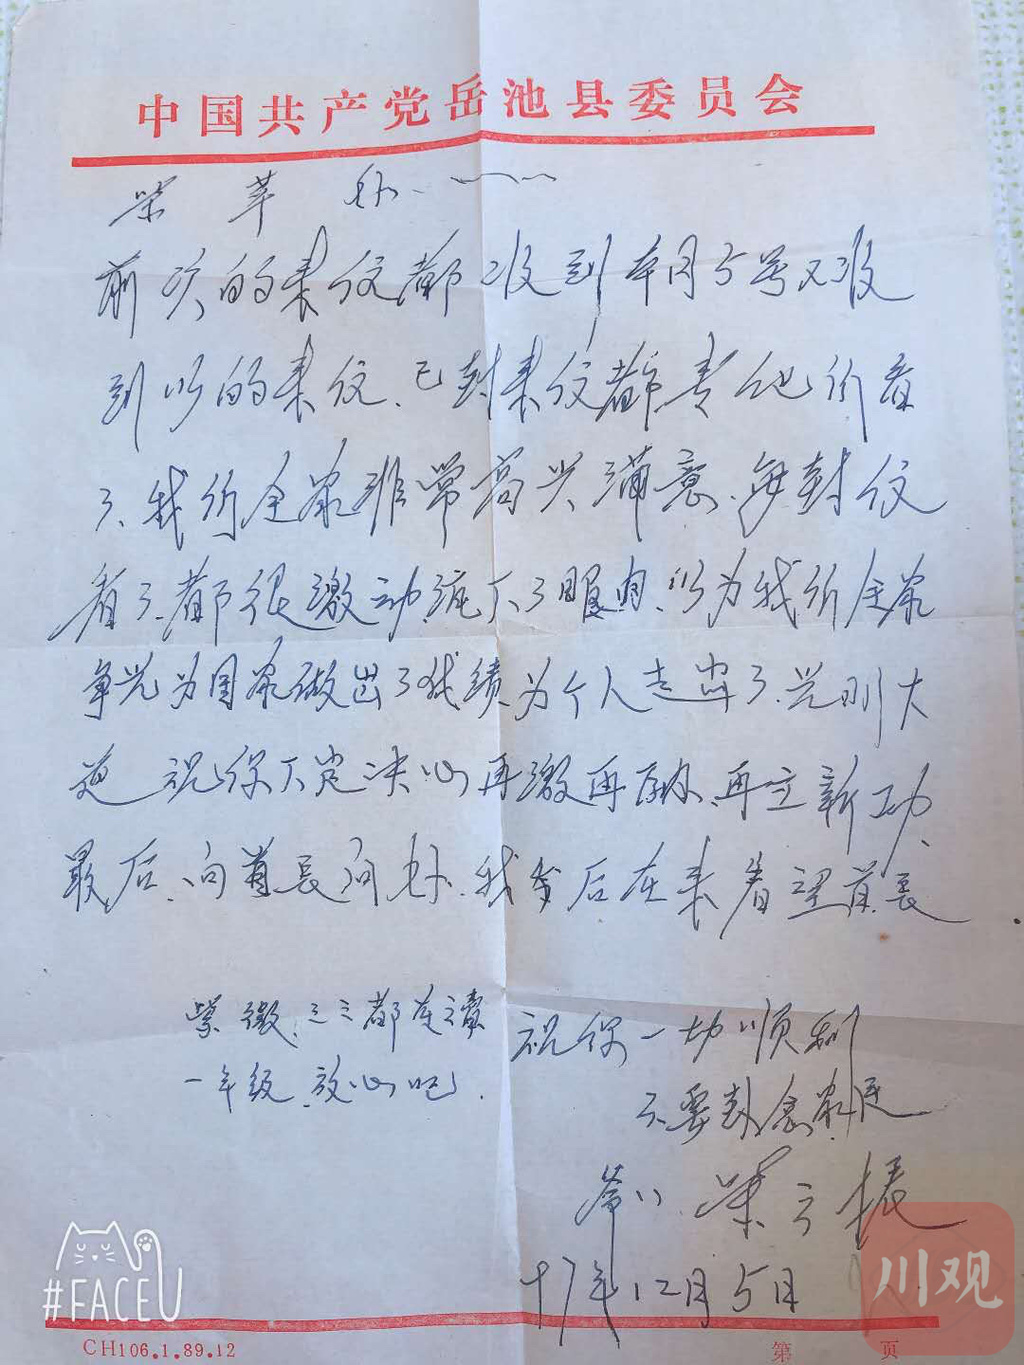 中国共产党岳池县委员会
荣 苹 你
前次的来信都收到本月5号又收
到你的来信、已封来信都是他们看
了、我们全家非常高兴满意、每封信
看了、都很激动流下了眼泪、以为我们全家
争光为国家做出了成绩为个人走出了、光明大
道 祝你下定决心再激再励、再立新功、
最后、向首长问好、我今后在来看望首长
紫微、三三都在读
一年级、放心吧、
祝你一切顺利
不要挂念家庭
柴云振
年12月5日
CH106.1.89.12
第 页
#FACEU
川观